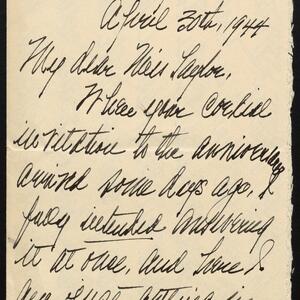 April 30th, 1944
My dear Miss Taylor,
When your cordial
invitation to the anniversary
arrived some days ago, I
fully intended answering
it at once, and here I
am just getting